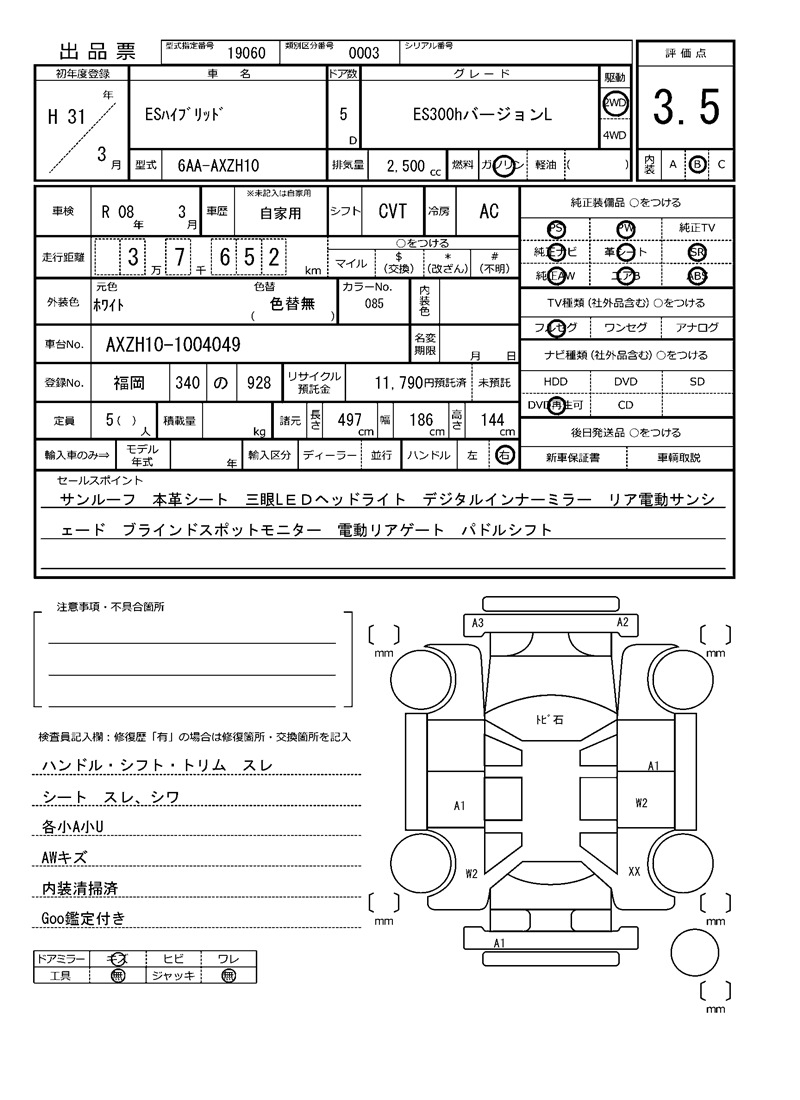 出品票 型式指定番号 19060 類別区分番号 0003 シリアル番号
評価点
3.5
内装 A B C
初年度登録 車 名 ドア数 グレード 駆動
H 31 年 3 月 ESﾊｲﾌﾞﾘｯﾄﾞ 5 D ES300hバージョンL 2WD
4WD
型式 6AA-AXZH10 排気量 2,500 cc 燃料 ガソリン 軽油 ( )
車検 R 08 年 3 月 車歴 ※未記入は自家用 自家用 シフト CVT 冷房 AC
走行距離 3 万 7 千 6 5 2 km ○をつける
マイル $ (交換) * (改ざん) # (不明)
外装色 元色 ﾎﾜｲﾄ 色替 ( 色替無 ) カラーNo. 085 内装色
車台No. AXZH10-1004049 名変期限 月 日
登録No. 福岡 340 の 928 リサイクル預託金 11,790円預託済 未預託
定員 5 ( ) 人 積載量 kg 諸元 長さ 497 cm 幅 186 cm 高さ 144 cm
輸入車のみ⇒ モデル年式 年 輸入区分 ディーラー 並行 ハンドル 左 右
純正装備品 ○をつける
PS PW 純正TV
純正ナビ 革シート SR
純正AW エアB ABS
TV種類 (社外品含む) ○をつける
フルセグ ワンセグ アナログ
ナビ種類 (社外品含む) ○をつける
HDD DVD SD
DVD再生可 CD
後日発送品 ○をつける
新車保証書 車輌取説
セールスポイント
サンルーフ 本革シート 三眼LEDヘッドライト デジタルインナーミラー リア電動サンシ
ェード ブラインドスポットモニター 電動リアゲート パドルシフト
注意事項・不具合箇所
検査員記入欄：修復歴「有」の場合は修復箇所・交換箇所を記入
ハンドル・シフト・トリム スレ
シート スレ、シワ
各小A小U
AWキズ
内装清掃済
Goo鑑定付き
ドアミラー キズ ヒビ ワレ
工具 無 ジャッキ 無
A3 A2
mm mm
ﾄﾋﾞ石
A1
A1 W2
W2 XX
mm mm
A1
mm